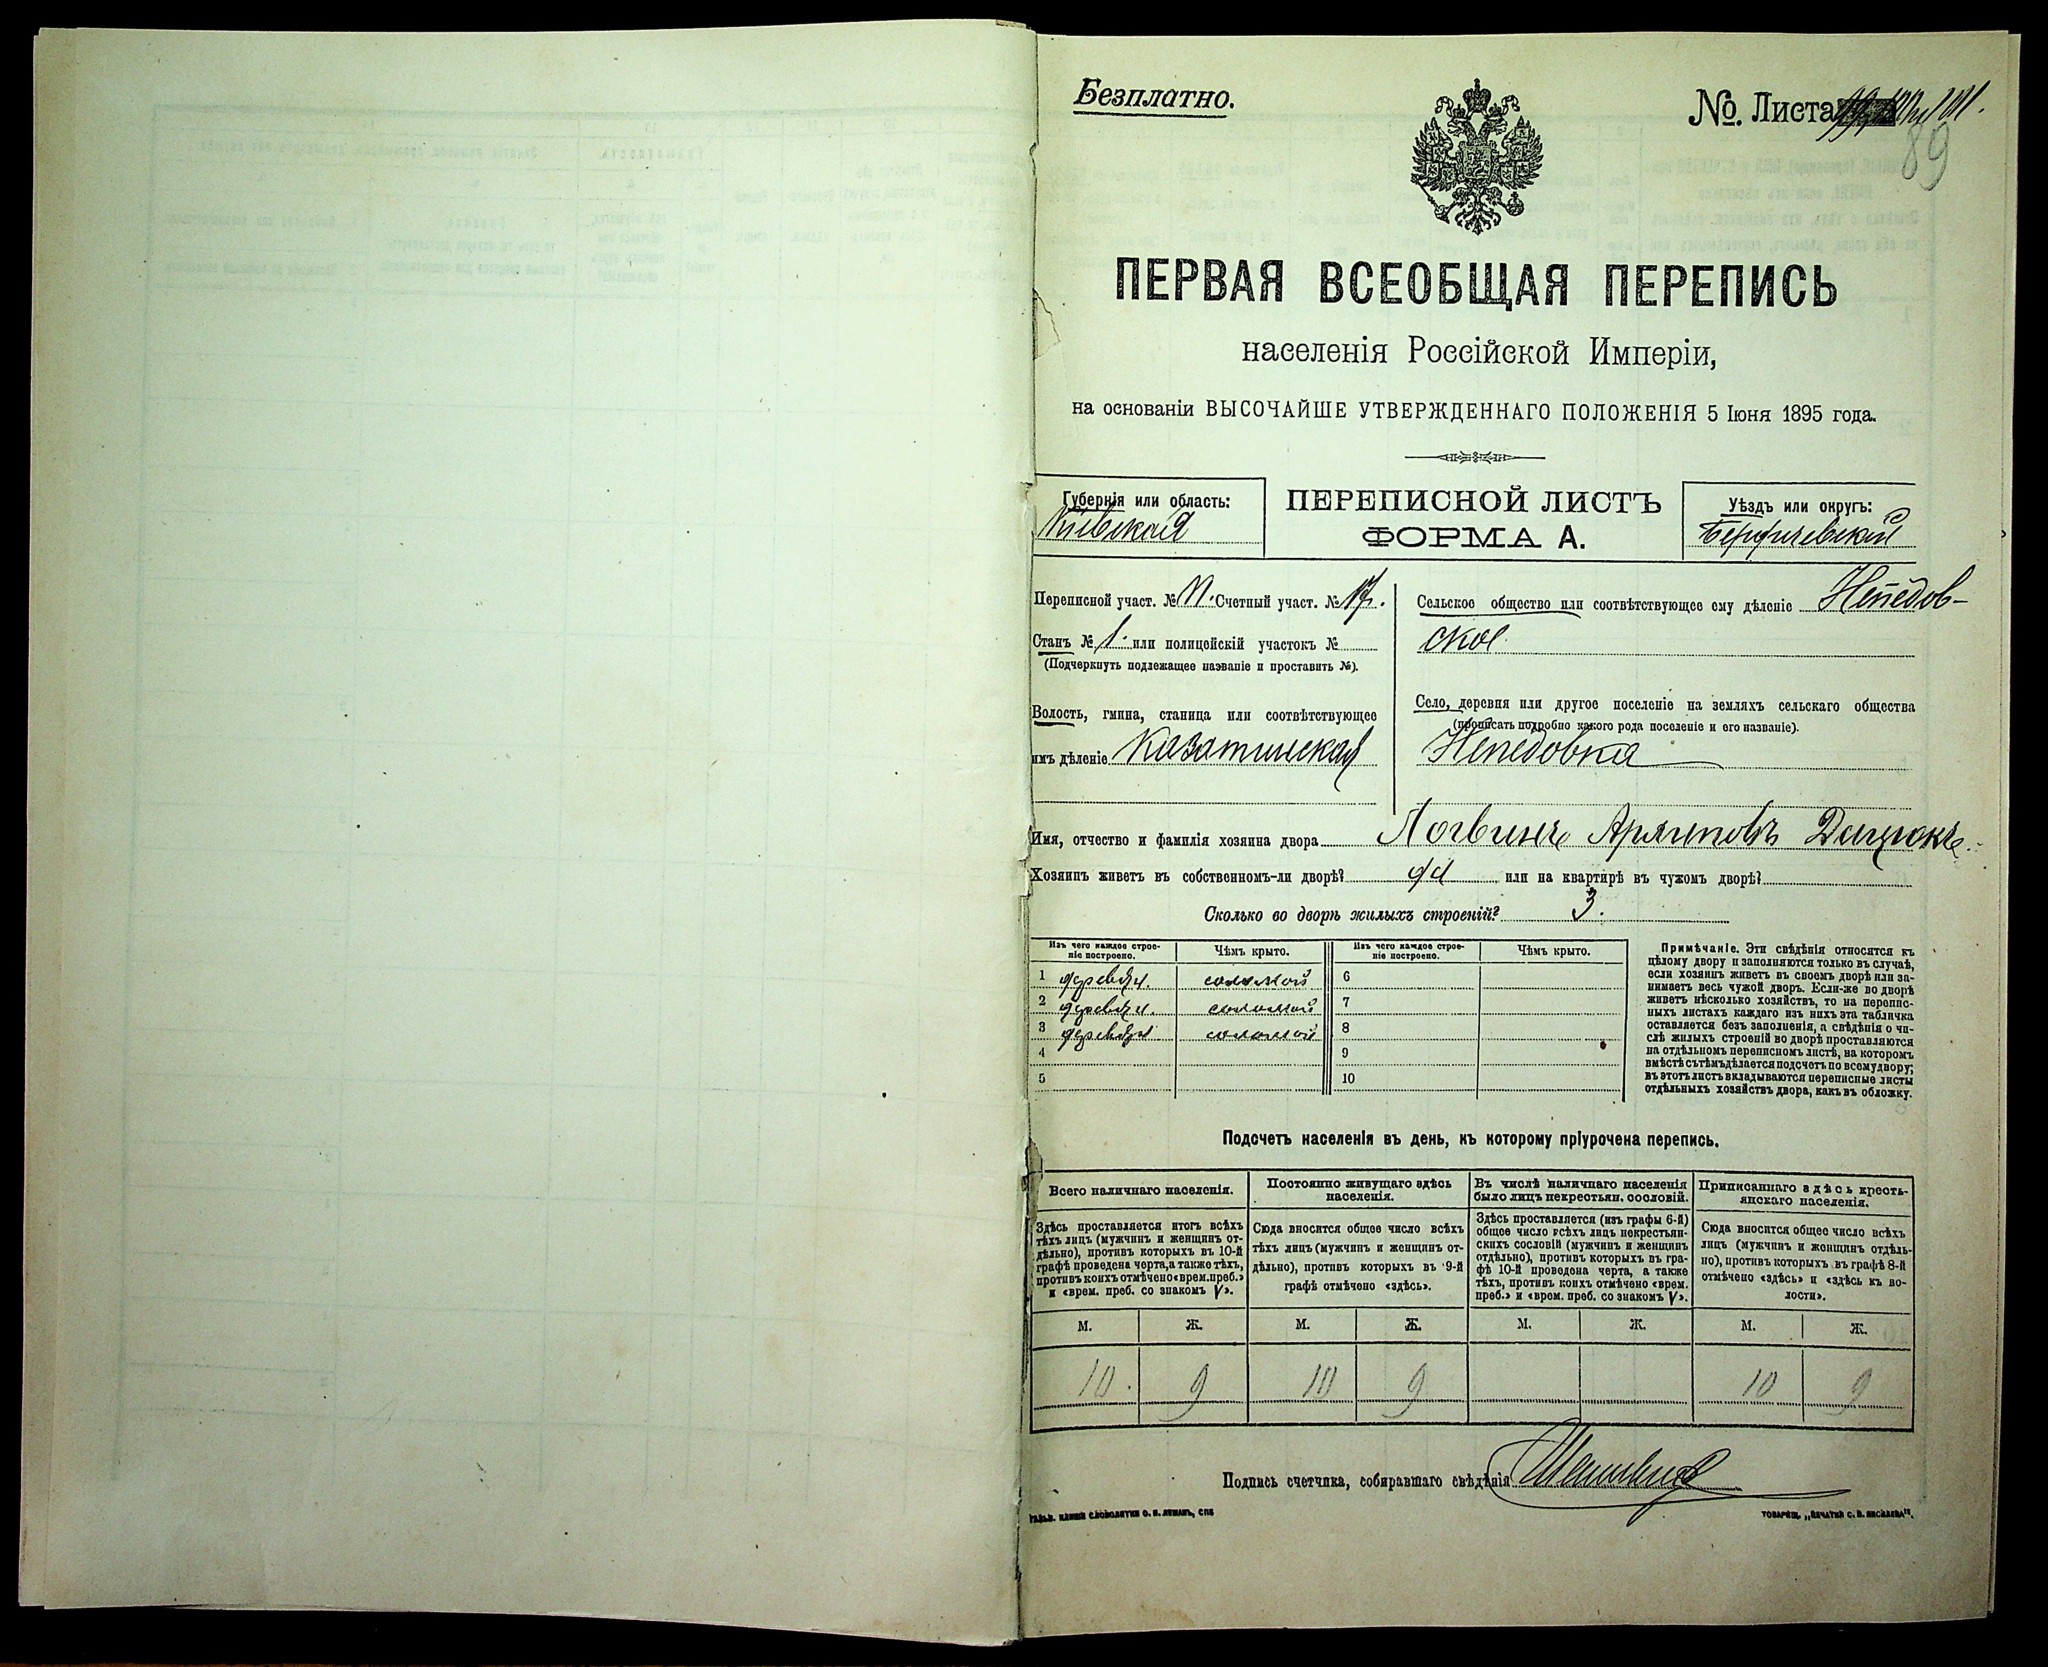 Безплатно.
№. Листа
89
ПЕРВАЯ ВСЕОБЩАЯ ПЕРЕПИСЬ
населенія Россійской Имперіи,
на основаніи ВЫСОЧАЙШЕ УТВЕРЖДЕННАГО ПОЛОЖЕНІЯ 5 Іюня 1895 года.
Губернія или область:
Кіевская
ПЕРЕПИСНОЙ ЛИСТЪ
ФОРМА А.
Уѣздъ или округъ:
Бердичевскій
Переписной участ. № VI. Счетный участ. № 17.
Станъ № 1. или полицейскій участокъ №
(Подчеркнуть подлежащее названіе и проставить №).
Волость, гмина, станица или соотвѣтствующее
имъ дѣленіе Казатинская
Сельское общество или соотвѣтствующее ему дѣленіе Непедов-
ское
Село, деревня или другое поселеніе на земляхъ сельскаго общества
(прописать подробно какого рода поселеніе и его названіе).
Непедовка
Имя, отчество и фамилія хозяина двора Логвинъ Архиповъ
Хозяинъ живетъ въ собственномъ-ли дворѣ? да или на квартирѣ въ чужомъ дворѣ?
Сколько во дворѣ жилыхъ строеній? 3.
Изъ чего каждое строе-
ніе построено.
Чѣмъ крыто.
Изъ чего каждое строе-
ніе построено.
Чѣмъ крыто.
1 деревян. соломой 6
2 деревян. соломой 7
3 деревян соломой 8
4 9
5 10
Примѣчаніе. Эти свѣдѣнія относятся къ
цѣлому двору и заполняются только въ случаѣ,
если хозяинъ живетъ въ своемъ дворѣ или за-
нимаетъ весь чужой дворъ. Если-же во дворѣ
живетъ нѣсколько хозяйствъ, то на перепис-
ныхъ листахъ каждаго изъ нихъ эта табличка
оставляется безъ заполненія, а свѣдѣнія о чи-
слѣ жилыхъ строеній во дворѣ проставляются
на отдѣльномъ переписномъ листѣ, на которомъ
вмѣстѣ съ тѣмъ дѣлается подсчетъ по всему двору;
въ этотъ листъ вкладываются переписные листы
отдѣльныхъ хозяйствъ двора, какъ въ обложку.
Подсчетъ населенія въ день, къ которому пріурочена перепись.
Всего наличнаго населенія.
Здѣсь проставляется итогъ всѣхъ
тѣхъ лицъ (мужчинъ и женщинъ от-
дѣльно), противъ которыхъ въ 10-й
графѣ проведена черта, а также тѣхъ,
противъ коихъ отмѣчено «врем. преб.»
и «врем. преб. со знакомъ V».
Постоянно живущаго здѣсь
населенія.
Сюда вносится общее число всѣхъ
тѣхъ лицъ (мужчинъ и женщинъ от-
дѣльно), противъ которыхъ въ 9-й
графѣ отмѣчено «здѣсь».
Въ числѣ наличнаго населенія
было лицъ некрестьян. сословій.
Здѣсь проставляется (изъ графы 6-й)
общее число всѣхъ лицъ некрестьян-
скихъ сословій (мужчинъ и женщинъ
отдѣльно), противъ которыхъ въ гра-
фѣ 10-й проведена черта, а также
тѣхъ, противъ коихъ отмѣчено «врем.
преб.» и «врем. преб. со знакомъ V».
Приписаннаго здѣсь кресть-
янскаго населенія.
Сюда вносится общее число всѣхъ
лицъ (мужчинъ и женщинъ отдѣль-
но), противъ которыхъ въ графѣ 8-й
отмѣчено «здѣсь» и «здѣсь къ во-
лости».
М. Ж. М. Ж. М. Ж. М. Ж.
10. 9 10 9 10 9
Подпись счетчика, собиравшаго свѣдѣнія
ТОВАРИЩ. „ПЕЧАТНЯ С. П. ЯКОВЛЕВА“.